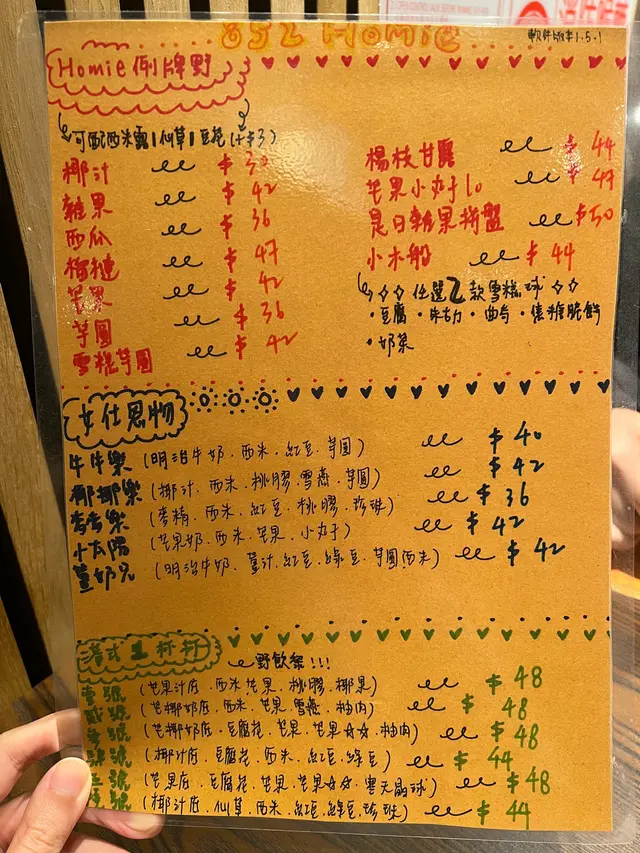 852 Homie
軟件版本1.5.1
Homie例牌野
可配西米露/仙草/豆花(+$3)
椰汁 $30
雜果 $42
西瓜 $36
榴槤 $47
芒果 $42
芋圓 $36
雪糕芋圓 $42
楊枝甘露 $44
芒果小丸子10 $47
是日雜果拼盤 $50
小木船 $44
任選2款雪糕球
·豆腐·朱古力·曲奇·焦糖脆餅
·奶菜
女仕恩物
牛牛樂(明治牛奶.西米.紅豆.芋圓) $40
椰椰樂(椰汁.西米.桃膠.雪燕.芋圓) $42
香香樂(香精.西米.紅豆.桃膠.珍珠) $36
小太陽(芒果奶.西米.芒果.小丸子) $42
薑奶兄(明治牛奶.薑汁.紅豆.綠豆.芋圓西米) $42
港式 杯杯
野飲架!!!
壹號(芒果汁底.西米.芒果.桃膠.椰果) $48
貳號(芒椰奶底.西米.芒果.雪燕.柚肉) $48
號(芒椰奶底.豆腐花.芒果.芒果 .柚肉) $48
號(椰汁底.豆腐花.西米.紅豆.綠豆) $44
號(芒果底.豆腐花.芒果.芒果 .寒天晶球) $48
號(椰汁底.仙草.西米.紅豆.綠豆.珍珠) $44